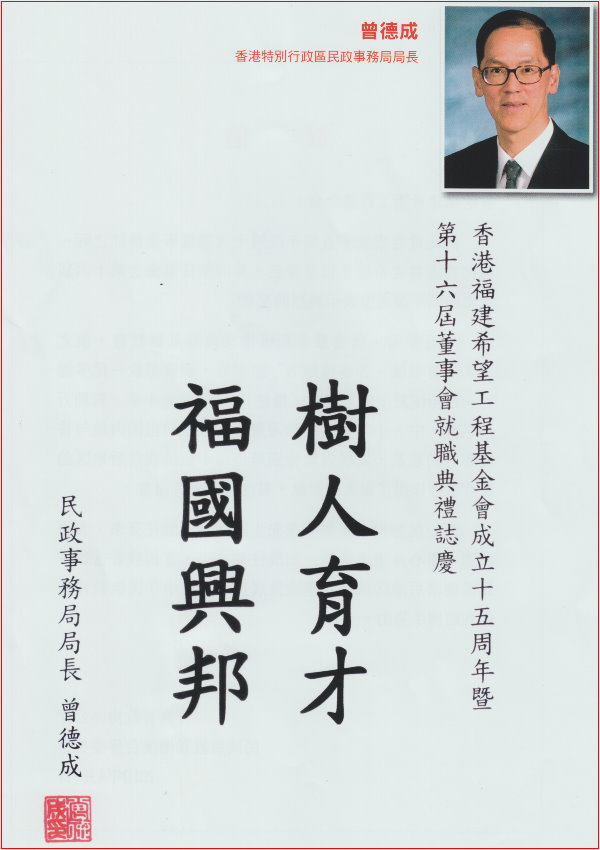 曾德成
香港特別行政區民政事務局局長
香港福建希望工程基金會成立十五周年暨
第十六屆董事會就職典禮誌慶
樹人育才
福國興邦
民政事務局局長 曾德成